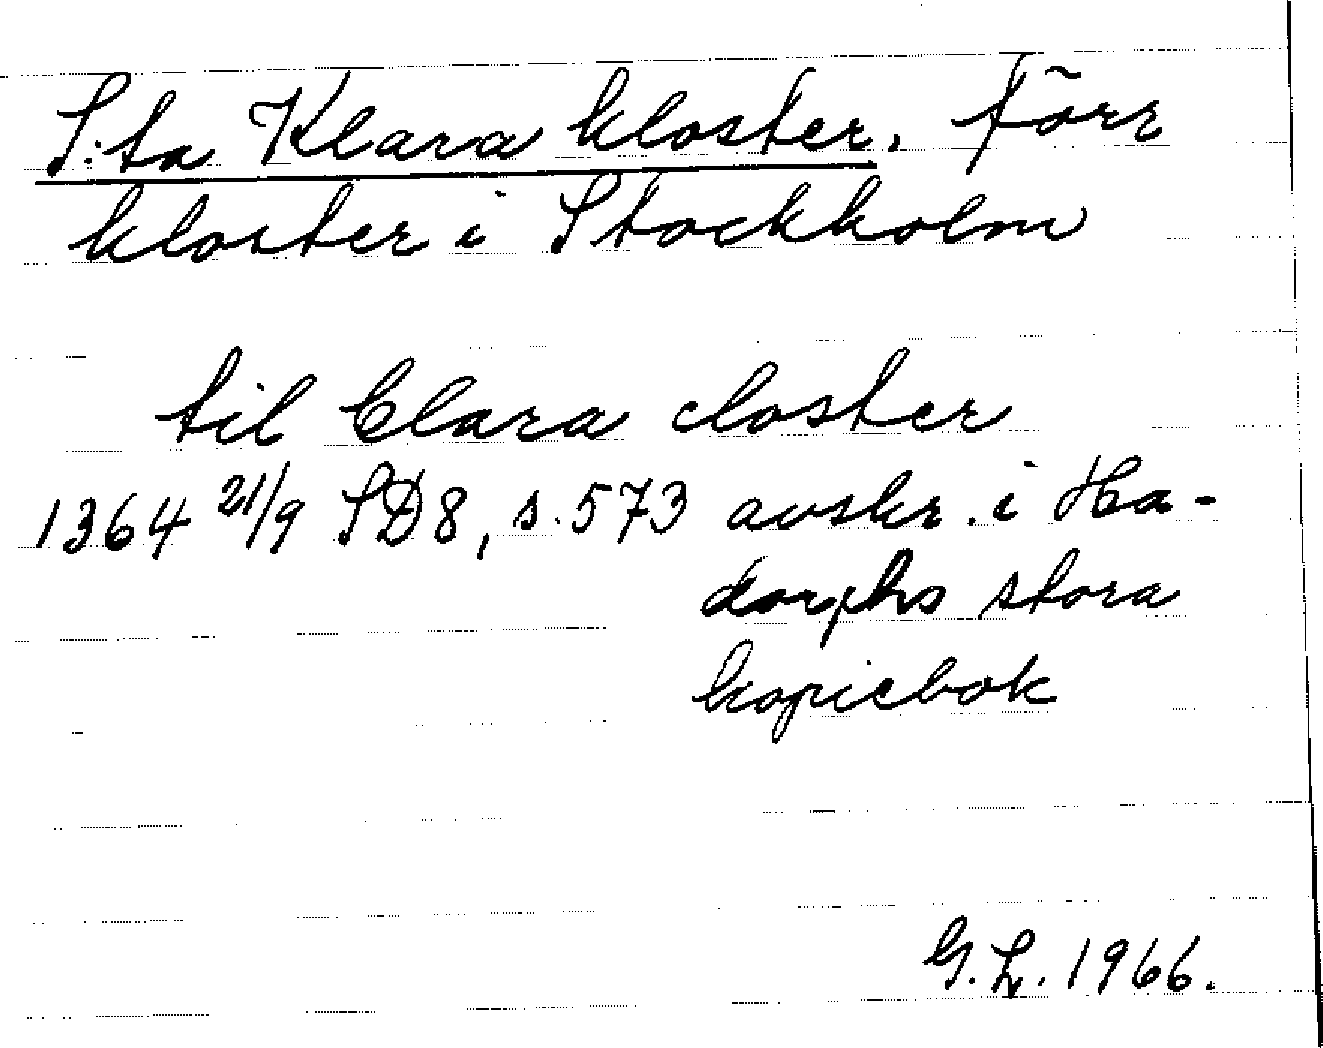 S:ta Klara kloster. Förr
kloster i Stockholm
til Clara closter
1364 21/9 SD8, s. 573 avskr. i Ha-
dorphs stora
kopiebok
G.L. 1966.